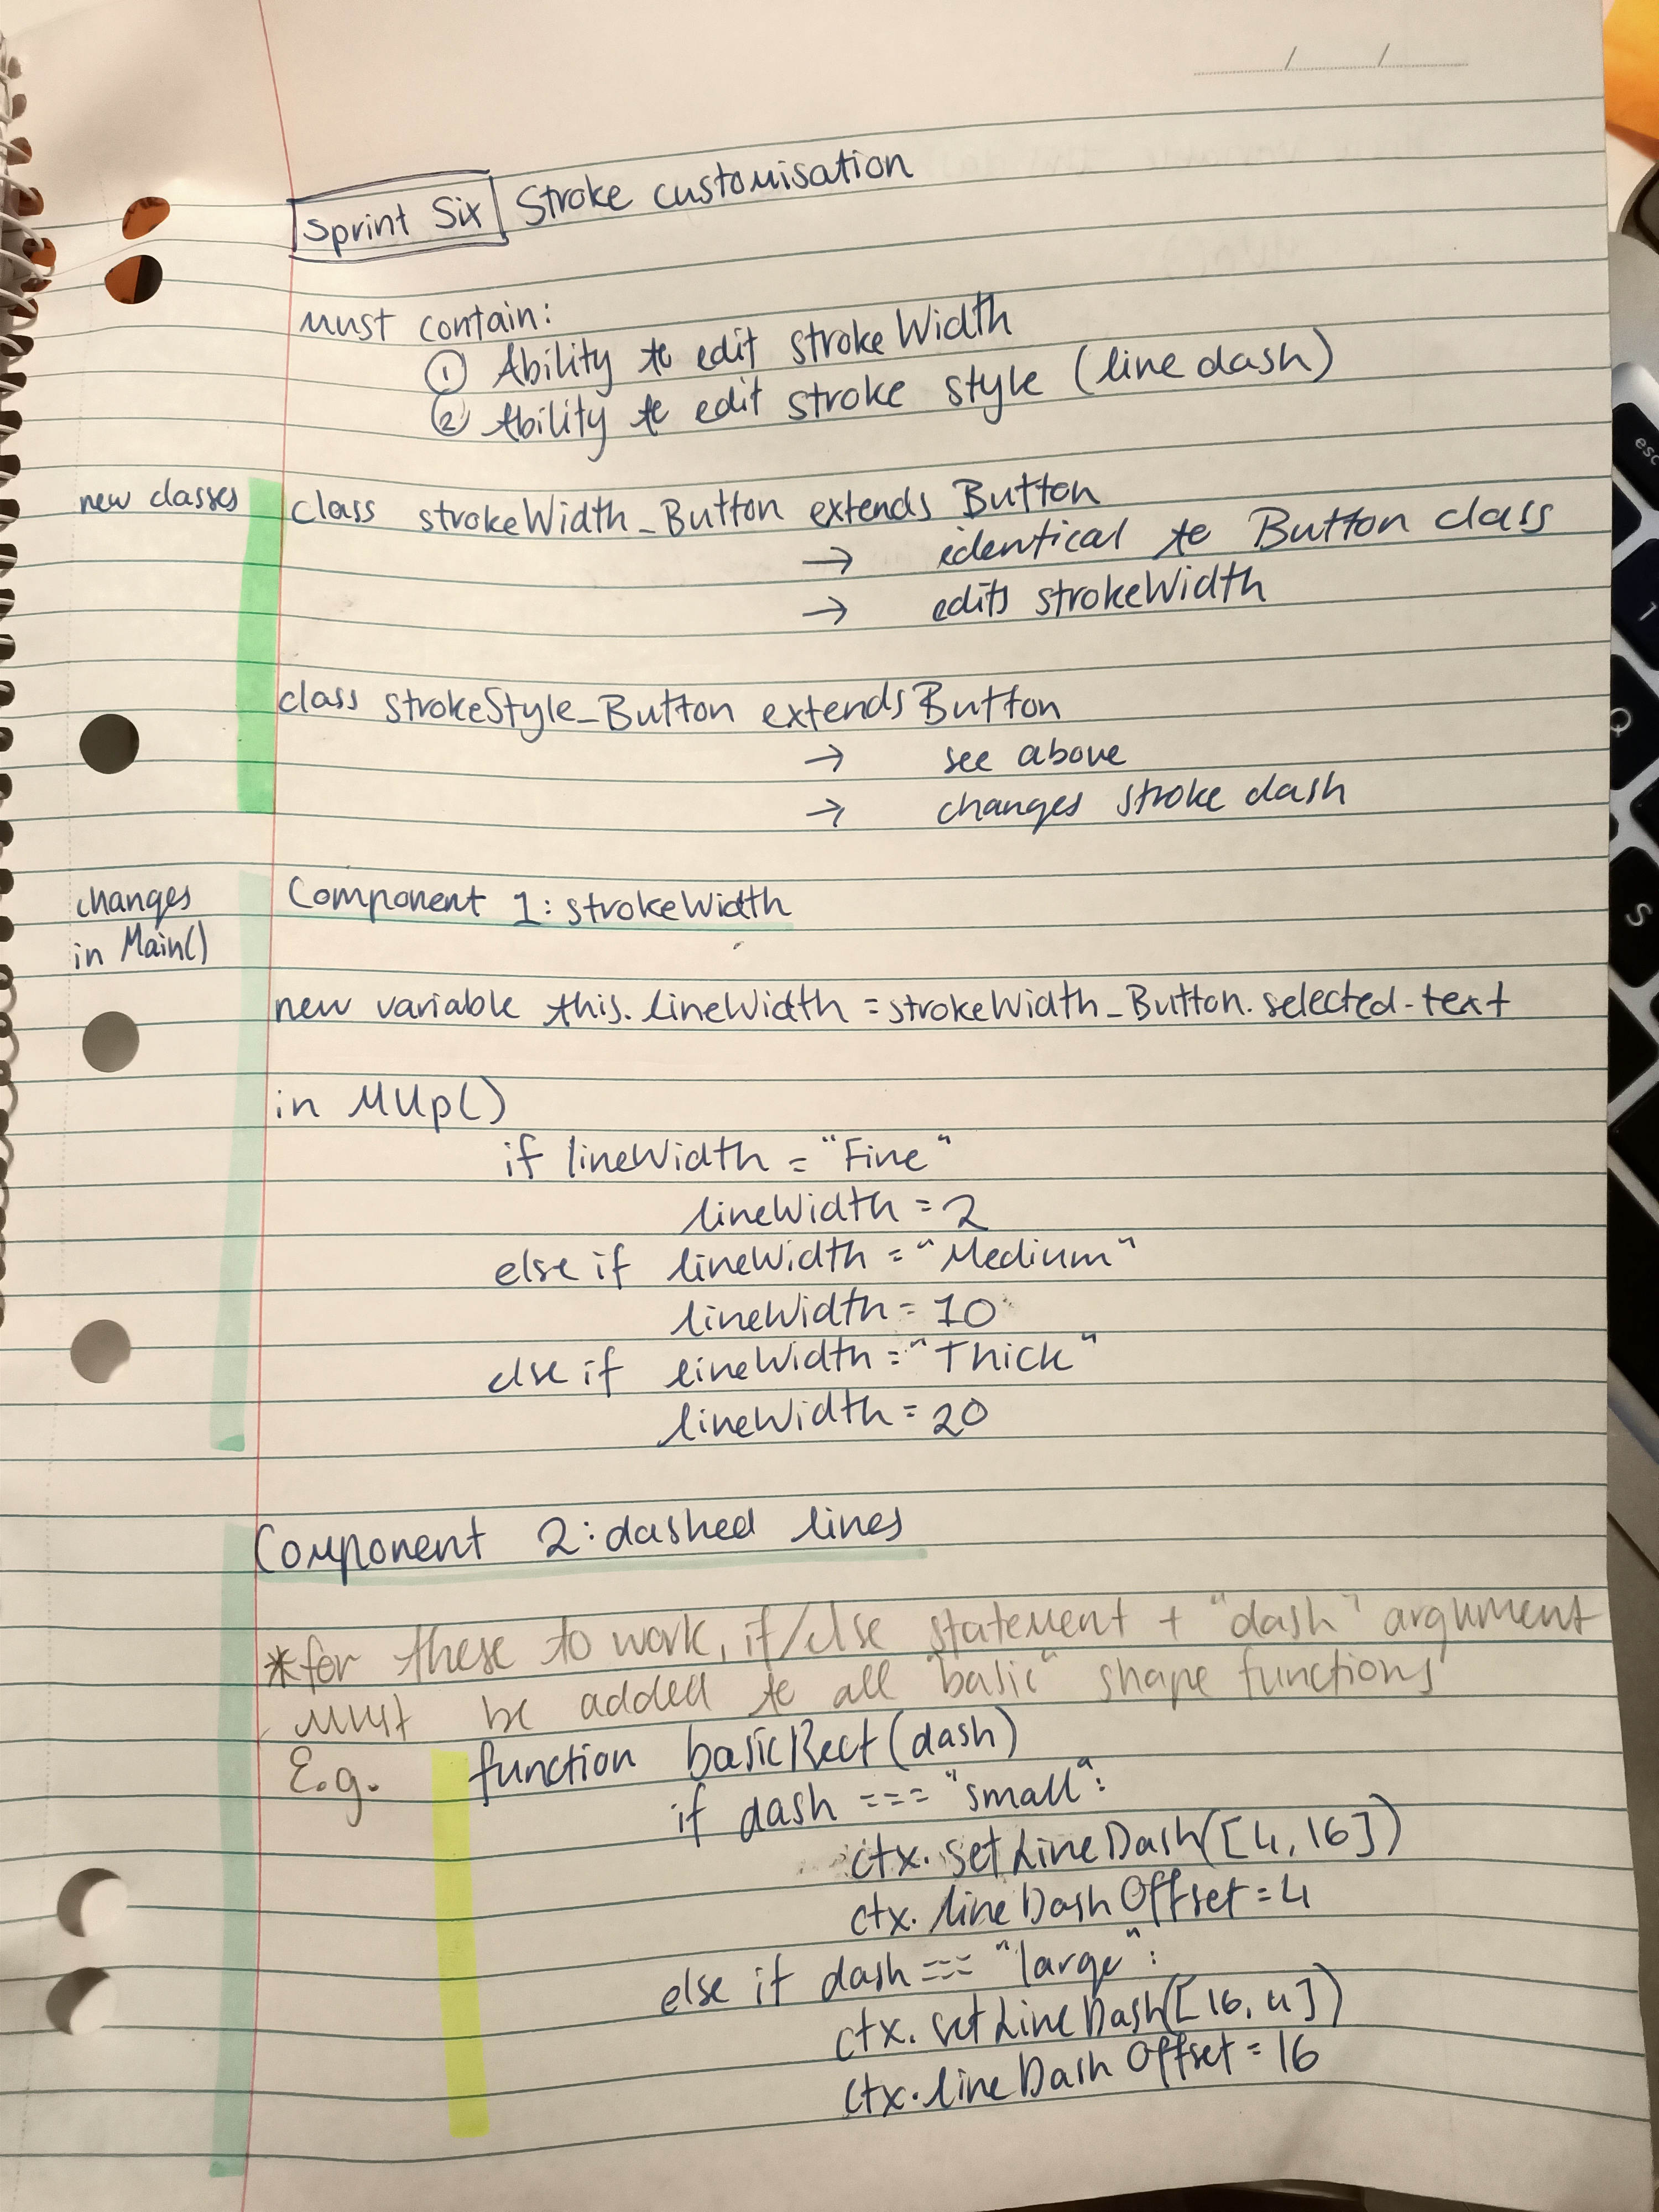 Sprint Six Stroke customisation
must contain:
① Ability to edit strokeWidth
② Ability to edit stroke style (line dash)
new classes class strokeWidth_Button extends Button
→ identical to Button class
→ edits strokeWidth
class strokeStyle_Button extends Button
→ see above
→ changes stroke dash
changes
in Main()
Component 1: strokeWidth
new variable this.lineWidth = strokeWidth_Button.selected-text
in MUp()
if lineWidth = "Fine"
lineWidth = 2
else if lineWidth = "Medium"
lineWidth = 10
else if lineWidth = "Thick"
lineWidth = 20
Component 2: dashed lines
*for these to work, if/else statement + "dash" argument
must be added to all "basic" shape functions
E.g. function basicRect(dash)
if dash === "small":
ctx.setLineDash([4, 16])
ctx.lineDashOffset = 4
else if dash === "large":
ctx.setLineDash([16, 4])
ctx.lineDashOffset = 16
esc
1
Q
S